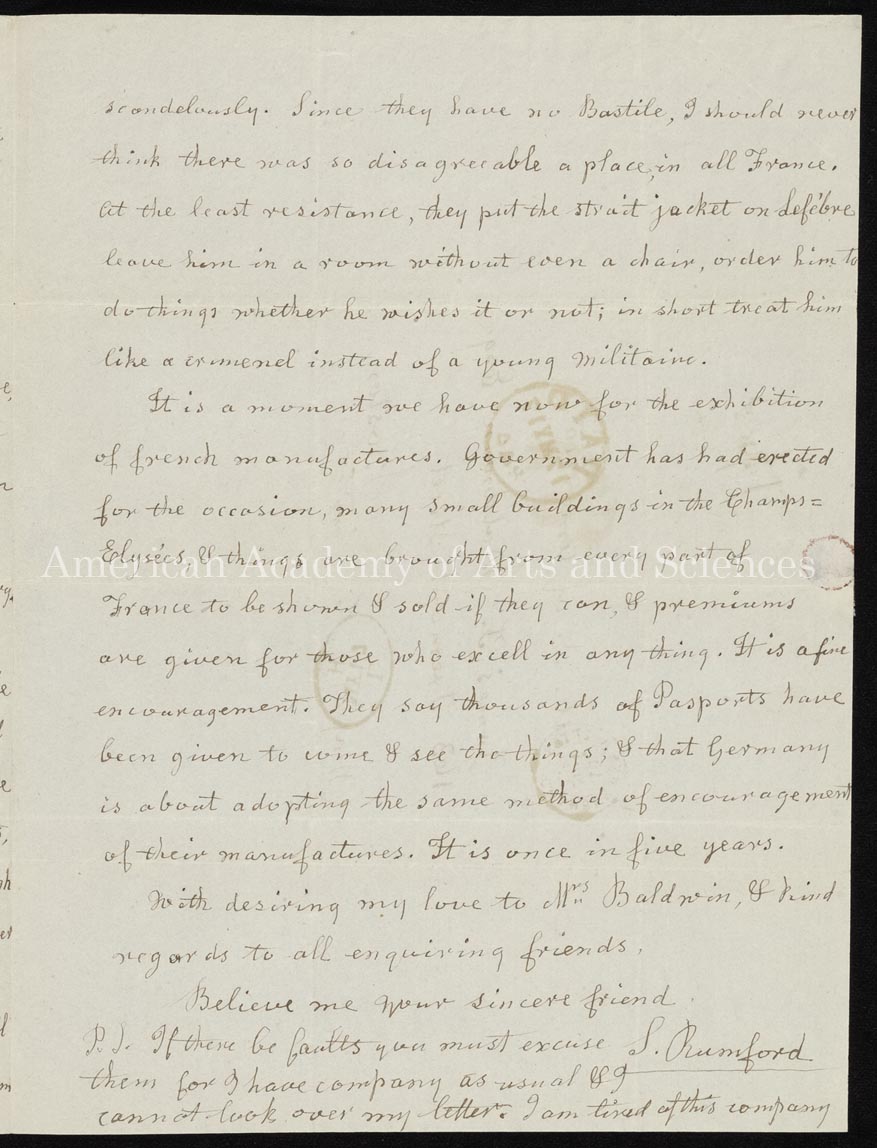 scondelously. Since they have no Bastile, I should never
think there was so disagreeable a place, in all France.
At the least resistance, they put the strait jacket on Lefébre
leave him in a room without even a chair, order him to
do things whether he wishes it or not; in short treat him
like a crimenel instead of a young militaire.
It is a moment we have now for the exhibition
of french manufactures. Government has had erected
for the occasion, many small buildings in the Champs=
Elysées, & things are brought from every part of
American Academy of Arts and Sciences
France to be shown & sold if they can, & premiums
are given for those who excell in any thing. It is a fine
encouragement. They say thousands of Pasports have
been given to come & see the things; & that Germany
is about adopting the same method of encouragement
of their manufactures. It is once in five years.
With desiring my love to Mrs Baldwin, & kind
regards to all enquiring friends,
Believe me your sincere friend.
S. Rumford
P.S. If there be faults you must excuse
them for I have company as usual & I
cannot look over my letter. I am tired of this company